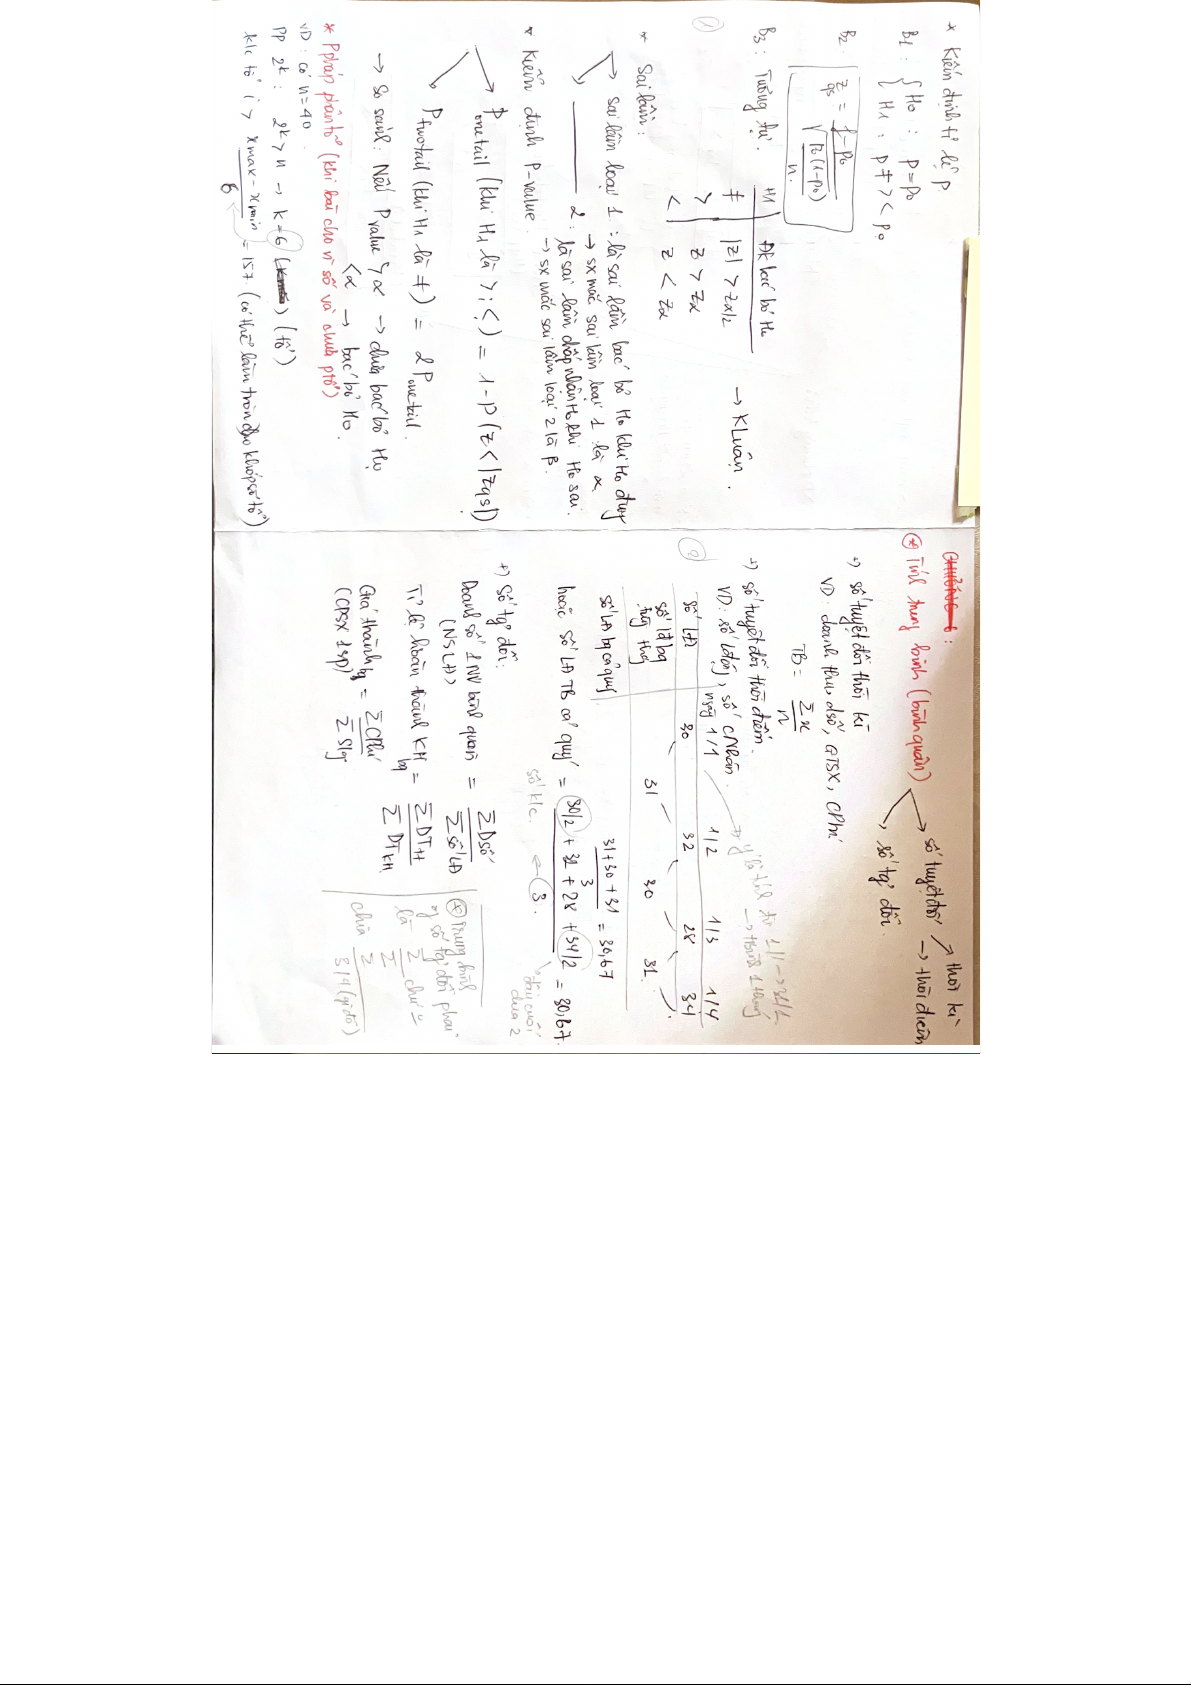 * Kiểm định tỉ lệ p
B1 : { H0 : p = p0
H1 : p ≠ > < p0
B2 : Zqs = f - p0 / √(p0(1-p0)/n)
B3 : Tương tự.
H1 | Đk bác bỏ H0
≠ | |Z| > Zα/2
> | Z > Zα
< | Z < Zα
→ K Luận.
①
* Sai lầm :
→ sai lầm loại 1 : là sai lầm bác bỏ H0 khi H0 đúng
→ sx mắc sai lầm loại 1 là α.
→ ——— 2 : là sai lầm chấp nhận H0 khi H0 sai.
→ sx mắc sai lầm loại 2 là β.
* Kiểm định P-value.
→ Ponetail (khi H1 là > ; <) = 1 - P(Z < |Zqs|)
Ptwotail (khi H1 là ≠) = 2 Ponetail.
→ So sánh : Nếu Pvalue > α → chưa bác bỏ H0
< α → bác bỏ H0.
* Ppháp phân tổ (khi bài cho vi số và chưa ptổ)
VD : có n = 40.
PP 2^k : 2^k > n → k = 6 (tổ)
k/c tổ i > xmax - xmin / 6 = 157. (có thể làm tròn cho khớp số tổ)
CHƯƠNG 6 :
⊛ Tính trung bình (bình quân) → số tuyệt đối → thời kì
→ thời điểm
→ số tg đối.
+) số tuyệt đối thời kì
VD : doanh thu, dsố, GTSX, CPhí
TB = Σx / n
+) số tuyệt đối thời điểm.
VD : số lđộng, số CNhân.
→ ý là tính từ 1/1 → 31/1
→ thành 1 tháng
ngày 1/1 | 1/2 | 1/3 | 1/4
②
số LĐ | 30 | 32 | 28 | 34
số lđ bq từng thg | 31 | 30 | 31
số LĐ bq cả quý 31 + 30 + 31 / 3 = 30,67
hoặc số LĐ TB cả quý = 30/2 + 32 + 28 + 34/2 / 3 = 30,67.
số k/c. ← 3.
đầu cuối chia 2
+) Số tg đối :
Doanh số 1 NV bình quân = Σ Dsố / Σ số LĐ
(NSLĐ)
Tỉ lệ hoàn thành KH bq = Σ DTTH / Σ DTKH
Giá thành bq = Σ CPhí / Σ Slg
(CPSX 1 sp)
⊛ Trung bình
số tg đối phải
là Σ / Σ chứ k
chia Σ / 3/4 (gì đó)